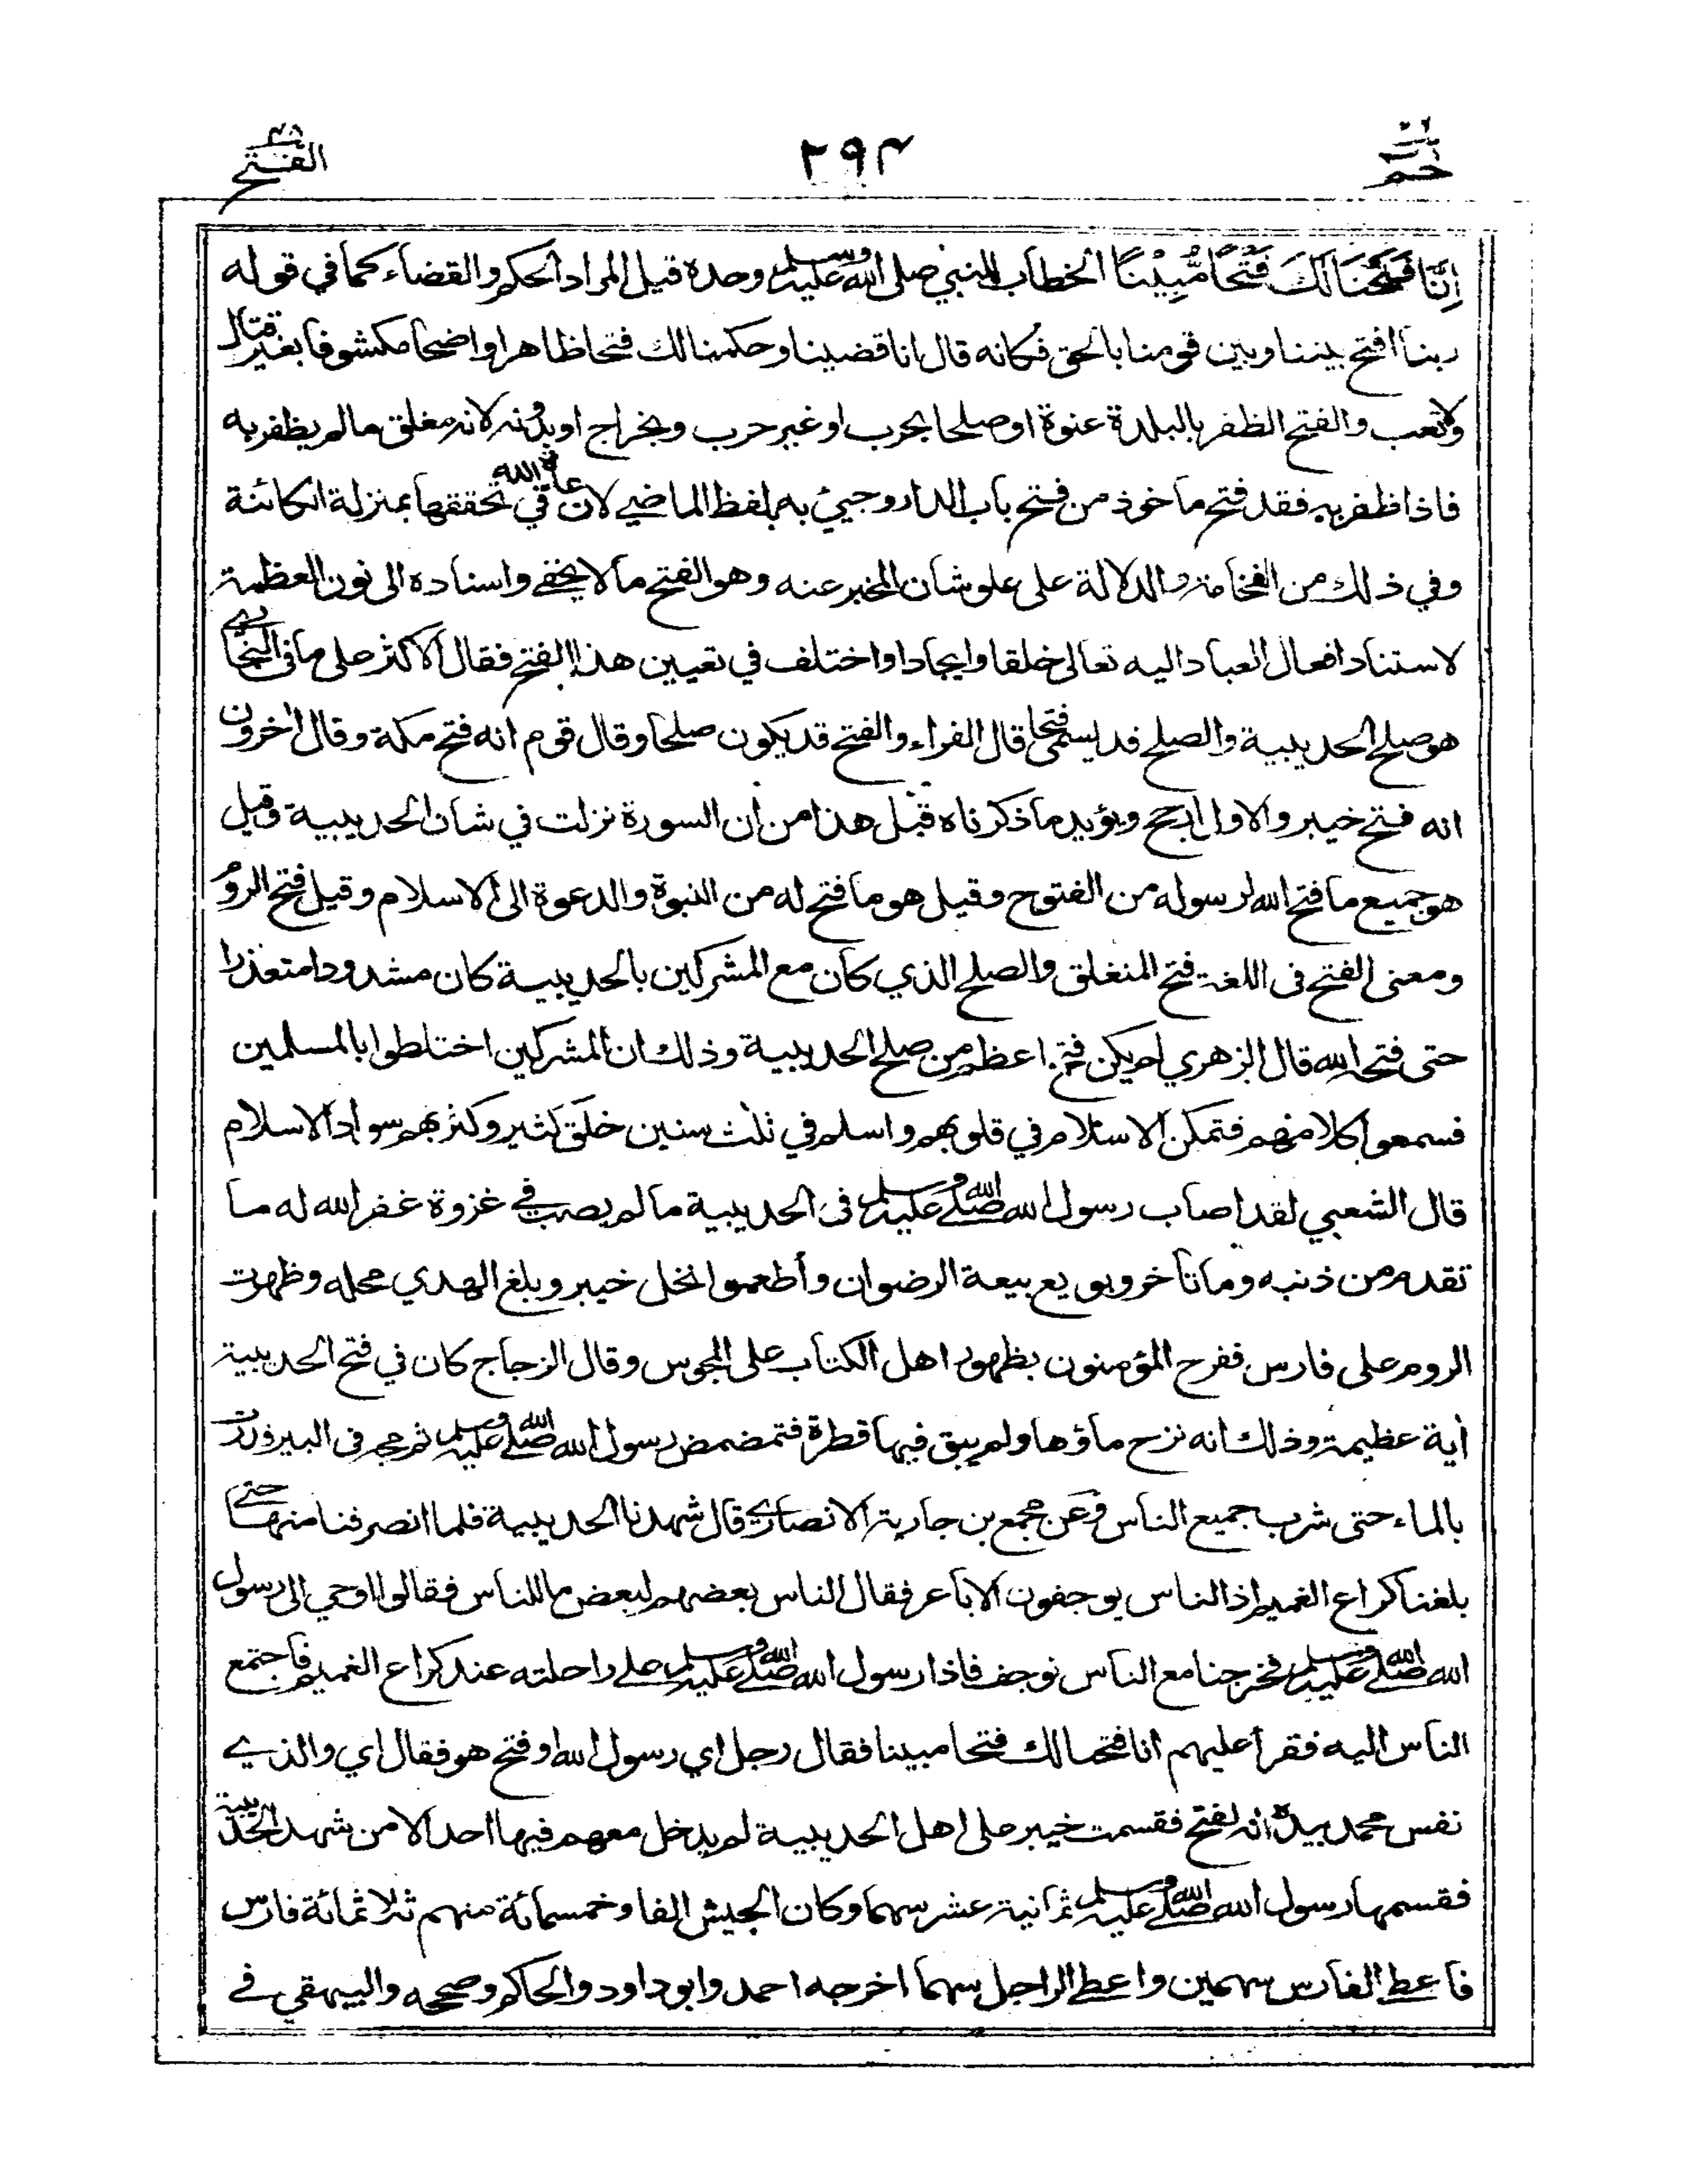 حم ٢٦
٢٩٤
الفتح ٤٨
اِنَّا فَتَحْنَا لَكَ فَتْحًا مُّبِيْنًا الخطاب للنبي صلى الله عليه وسلم وحده قيل المراد الحكم والقضاء كما في قوله
ربنا افتح بيننا وبين قومنا بالحق فكانه قال انا قضينا وحكمنا لك فتحا ظاهرا واضحا مكشوفا بغير قتال
ولا تعب والفتح الظفر بالبلدة عنوة او صلحا بحرب او غير حرب وبخراج او بدونه لانه مغلق ما لم يظفر به
فاذا ظفر به فقد فتح ماخوذ من فتح باب الدار وجيئ به بلفظ الماضي لان عادة الله في تحققها بمنزلة الكائنة
وفي ذلك من الفخامة والدلالة على علو شان المخبر عنه وهو الفتح ما لا يخفى واسناده الى نون العظمة
لاستناد افعال العباد اليه تعالى خلقا وايجادا واختلف في تعيين هذا الفتح فقال الاكثر على ما فى البخاري
هو صلح الحديبية والصلح قد يسمى فتحا قال الفراء والفتح قد يكون صلحا وقال قوم انه فتح مكة وقال اخرون
انه فتح خيبر والاول ارجح ويؤيد ما ذكرناه قبل هذا من ان السورة نزلت في شان الحديبية وقيل
هو جميع ما فتح الله لرسوله من الفتوح وقيل هو ما فتح له من النبوة والدعوة الى الاسلام وقيل فتح الروم
ومعنى الفتح فى اللغة فتح المنغلق والصلح الذي كان مع المشركين بالحديبية كان مشدودا متعذرا
حتى فتح الله قال الزهري لم يكن فتح اعظم من صلح الحديبية وذلك ان المشركين اختلطوا بالمسلمين
فسمعوا كلامهم فتمكن الاسلام في قلوبهم واسلم في ثلث سنين خلق كثير وكثر بهم سواد الاسلام
قال الشعبي لقد اصاب رسول الله صلى الله عليه وسلم فى الحديبية ما لم يصب في غزوة غفر الله له ما
تقدم من ذنبه وما تأخر وبويع بيعة الرضوان وأطعموا نخل خيبر وبلغ الهدي محله وظهرت
الروم على فارس ففرح المؤمنون بظهور اهل الكتاب على المجوس وقال الزجاج كان في فتح الحديبية
أية عظيمة وذلك انه نزح ماؤها ولم يبق فيها قطرة فتمضمض رسول الله صلى الله عليه وسلم ثم مجه فى البير فدرت
بالماء حتى شرب جميع الناس وعن مجمع بن جارية الانصاري قال شهدنا الحديبية فلما انصرفنا منها حتى
بلغنا كراع الغميم اذ الناس يوجفون الاباعر فقال الناس بعضهم لبعض ما للناس فقالوا اوحي الى رسول
الله صلى الله عليه وسلم فخرجنا مع الناس نوجف فاذا رسول الله صلى الله عليه وسلم على راحلته عند كراع الغميم فاجتمع
الناس اليه فقرأ عليهم انا فتحنا لك فتحا مبينا فقال رجل اي رسول الله اوفتح هو فقال اي والذي
نفس محمد بيده انه لفتح فقسمت خيبر على اهل الحديبية لم يدخل معهم فيها احد الا من شهد الحديبية
فقسمها رسول الله صلى الله عليه وسلم ثمانية عشر سهما وكان الجيش الفا وخمسمائة منهم ثلاثمائة فارس
فاعطى الفارس سهمين واعطى الراجل سهما اخرجه احمد وابو داود والحاكم وصححه والبيهقي في